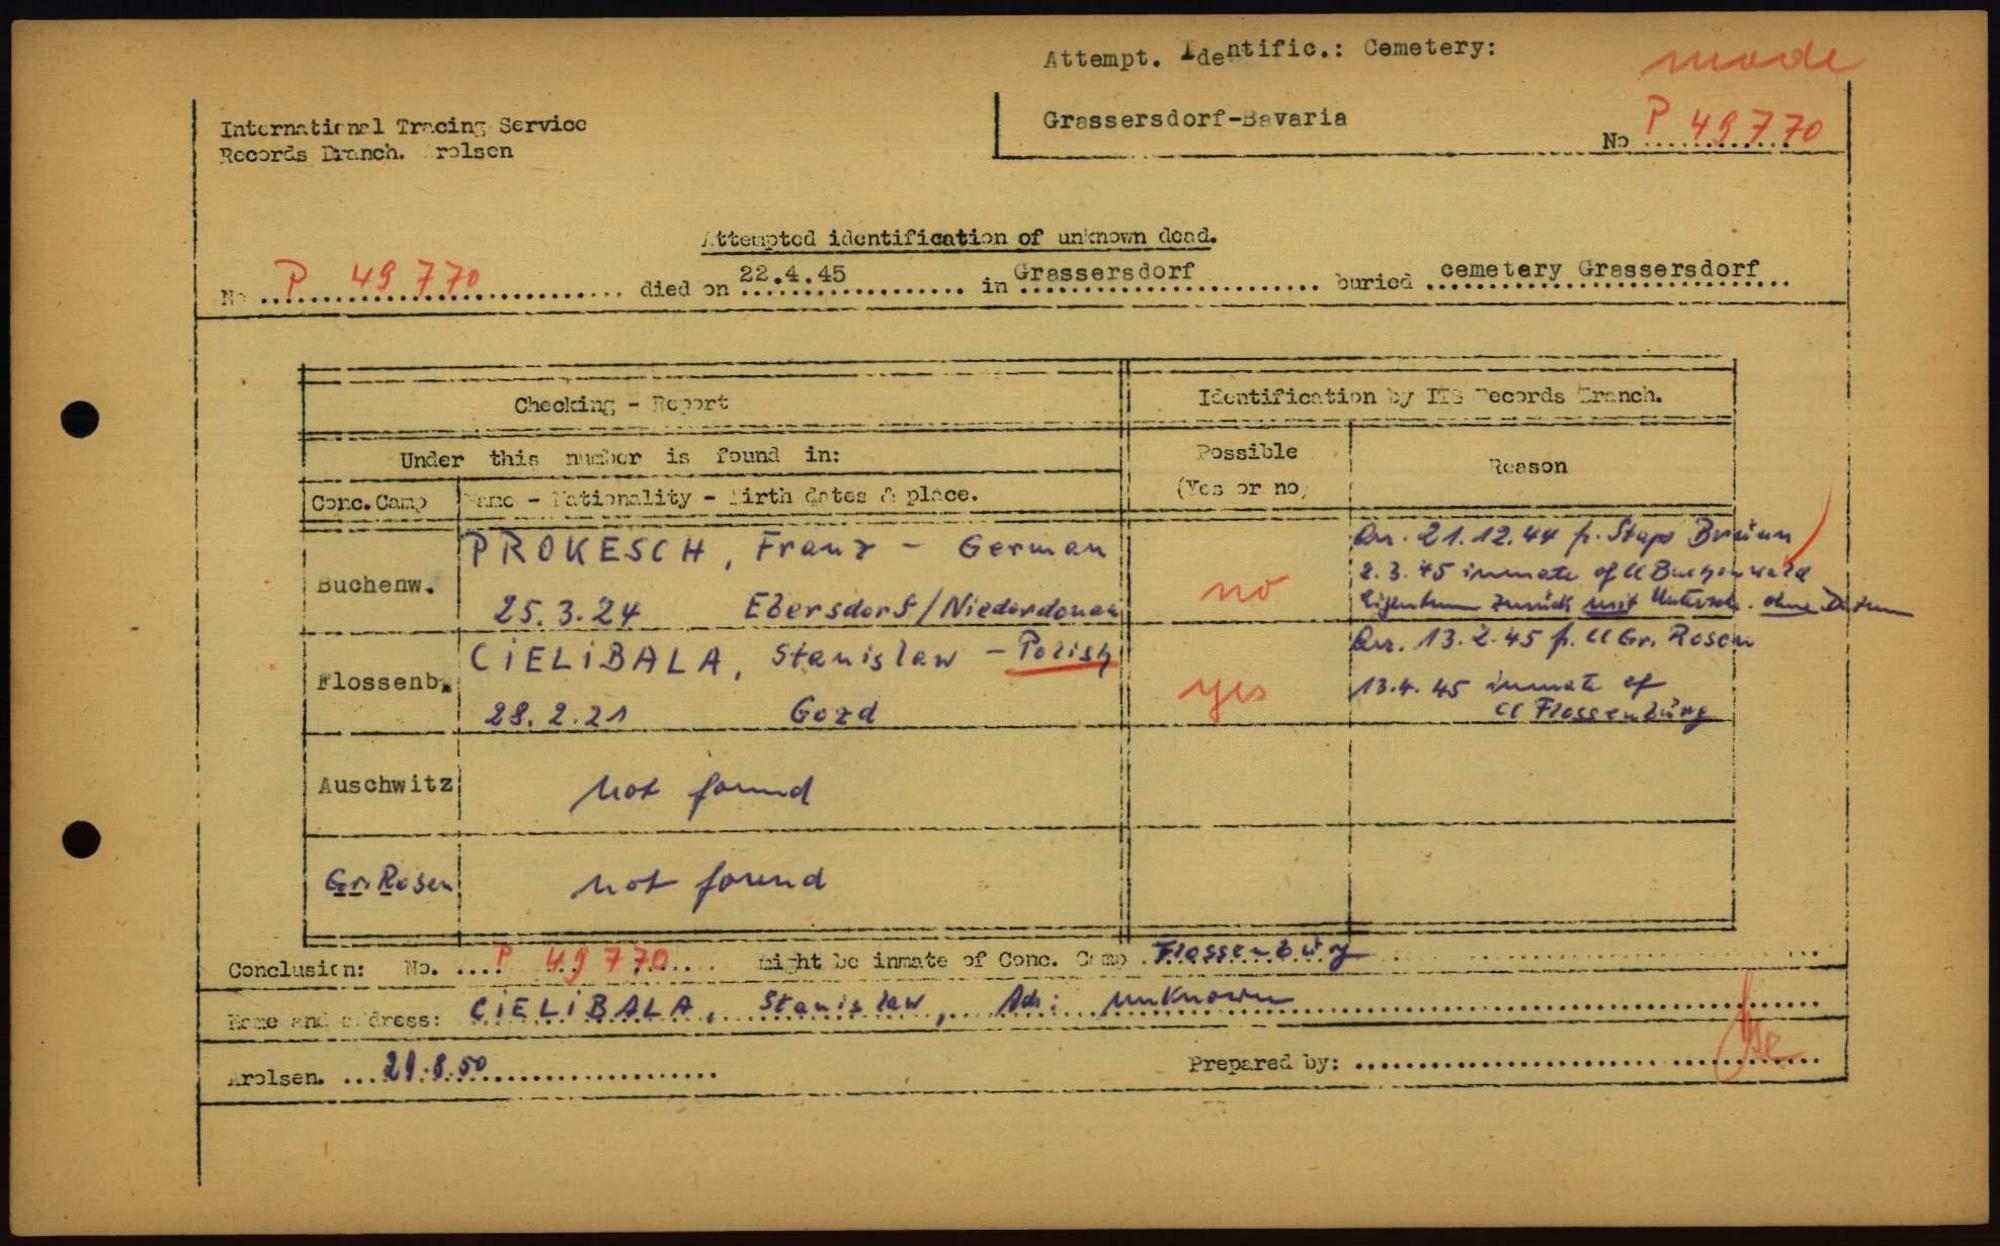 Attempt. Identific.: Cemetery:
made
Grassersdorf-Bavaria
No P 49770
International Tracing Service
Records Branch. Arolsen
Attempted identification of unknown dead.
No P 49770 died on 22.4.45 in Grassersdorf buried cemetery Grassersdorf
Checking - Report
Identification by ITS Records Branch.
Under this number is found in:
Possible
(Yes or no)
Reason
Conc.Camp
Name - Nationality - Birth dates & place.
Buchenw.
PROKESCH, Franz - German
25.3.24 Ebersdorf/Niederdonau
no
Arr. 21.12.44 fr. Stapo Brünn
2.3.45 inmate of CC Buchenwald
Eigentum zurück mit Untersch. ohne Datum
Flossenb.
CIELIBALA, Stanislaw - Polish
28.2.21 Gozd
yes
Arr. 13.2.45 fr. CC Gr. Rosen
13.4.45 inmate of
CC Flossenbürg
Auschwitz
not found
Gr. Rosen
not found
Conclusion: No. P 49770 might be inmate of Conc. Camp Flossenbürg
Name and address: CIELIBALA, Stanislaw, Adr: unknown
Arolsen. 29.8.50
Prepared by: